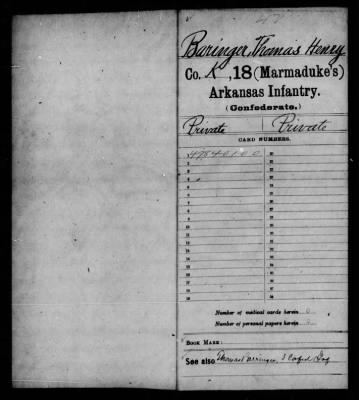 47
Baringer, Thomas Henry
Co. K, 18 (Marmaduke's)
Arkansas Infantry.
(Confederate.)
Private Private
CARD NUMBERS.
Number of medical cards herein 0
Number of personal papers herein 0
BOOK MARK:
See also Thomas Barringer, 3 Confed